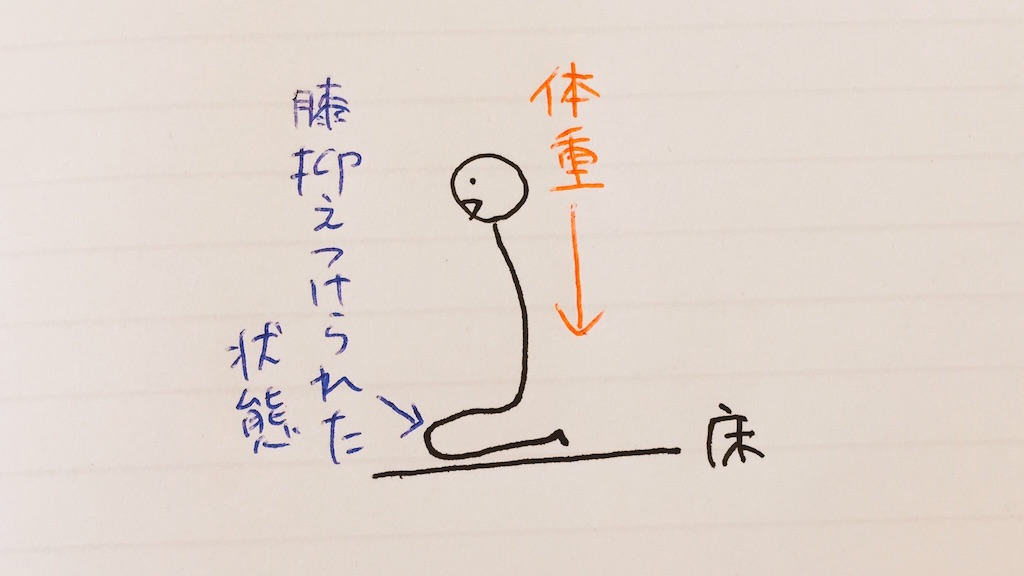 体重
膝抑えつけられた
状態
床